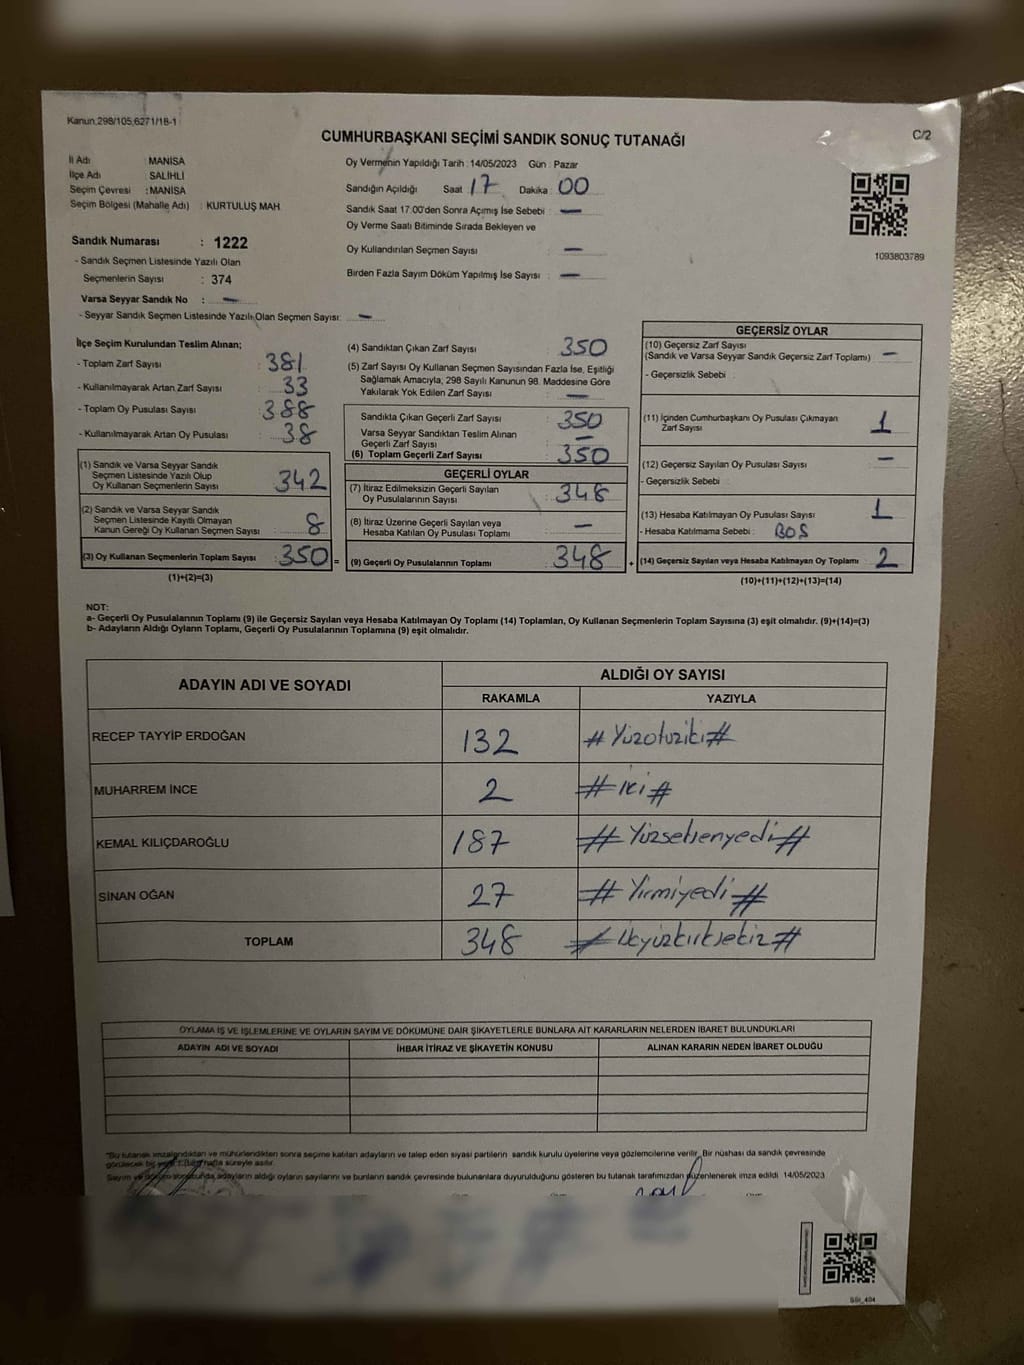 Kanun.298/105,6271/18-1
C/2
CUMHURBAŞKANI SEÇİMİ SANDIK SONUÇ TUTANAĞI
İl Adı : MANİSA
İlçe Adı : SALİHLİ
Seçim Çevresi : MANİSA
Seçim Bölgesi (Mahalle Adı) : KURTULUŞ MAH
Sandık Numarası : 1222
- Sandık Seçmen Listesinde Yazılı Olan
Seçmenlerin Sayısı : 374
Varsa Seyyar Sandık No : —
- Seyyar Sandık Seçmen Listesinde Yazılı Olan Seçmen Sayısı: —
Oy Vermenin Yapıldığı Tarih : 14/05/2023 Gün : Pazar
Sandığın Açıldığı Saat 17 Dakika : 00
Sandık Saat 17.00'den Sonra Açımış İse Sebebi : —
Oy Verme Saati Bitiminde Sırada Bekleyen ve
Oy Kullandırılan Seçmen Sayısı : —
Birden Fazla Sayım Döküm Yapılmış İse Sayısı : —
1093803789
İlçe Seçim Kurulundan Teslim Alınan;
- Toplam Zarf Sayısı : 381
- Kullanılmayarak Artan Zarf Sayısı : 33
- Toplam Oy Pusulası Sayısı : 388
- Kullanılmayarak Artan Oy Pusulası : 38
(1) Sandık ve Varsa Seyyar Sandık
Seçmen Listesinde Yazılı Olup
Oy Kullanan Seçmenlerin Sayısı : 342
(2) Sandık ve Varsa Seyyar Sandık
Seçmen Listesinde Kayıtlı Olmayan
Kanun Gereği Oy Kullanan Seçmen Sayısı : 8
(3) Oy Kullanan Seçmenlerin Toplam Sayısı : 350 =
(1)+(2)=(3)
(4) Sandıktan Çıkan Zarf Sayısı : 350
(5) Zarf Sayısı Oy Kullanan Seçmen Sayısından Fazla İse, Eşitliği
Sağlamak Amacıyla, 298 Sayılı Kanunun 98. Maddesine Göre
Yakılarak Yok Edilen Zarf Sayısı : —
Sandıkta Çıkan Geçerli Zarf Sayısı : 350
Varsa Seyyar Sandıktan Teslim Alınan
Geçerli Zarf Sayısı : —
(6) Toplam Geçerli Zarf Sayısı : 350
GEÇERLİ OYLAR
(7) İtiraz Edilmeksizin Geçerli Sayılan
Oy Pusulalarının Sayısı : 348
(8) İtiraz Üzerine Geçerli Sayılan veya
Hesaba Katılan Oy Pusulaları Toplamı : —
(9) Geçerli Oy Pusulalarının Toplamı : 348 +
GEÇERSİZ OYLAR
(10) Geçersiz Zarf Sayısı
(Sandık ve Varsa Seyyar Sandık Geçersiz Zarf Toplamı) : —
- Geçersizlik Sebebi :
(11) İçinden Cumhurbaşkanı Oy Pusulası Çıkmayan
Zarf Sayısı : 1
(12) Geçersiz Sayılan Oy Pusulası Sayısı : —
- Geçersizlik Sebebi :
(13) Hesaba Katılmayan Oy Pusulası Sayısı : 1
- Hesaba Katılmama Sebebi : BOŞ
(14) Geçersiz Sayılan veya Hesaba Katılmayan Oy Toplamı : 2
(10)+(11)+(12)+(13)=(14)
NOT:
a- Geçerli Oy Pusulalarının Toplamı (9) ile Geçersiz Sayılan veya Hesaba Katılmayan Oy Toplamı (14) Toplamları, Oy Kullanan Seçmenlerin Toplam Sayısına (3) eşit olmalıdır. (9)+(14)=(3)
b- Adayların Aldığı Oyların Toplamı, Geçerli Oy Pusulalarının Toplamına (9) eşit olmalıdır.
ADAYIN ADI VE SOYADI
ALDIĞI OY SAYISI
RAKAMLA YAZIYLA
RECEP TAYYİP ERDOĞAN 132 # Yüzotuziki #
MUHARREM İNCE 2 # iki #
KEMAL KILIÇDAROĞLU 187 # Yüzseksenyedi #
SİNAN OĞAN 27 # Yirmiyedi #
TOPLAM 348 # Üçyüzkırksekiz #
OYLAMA İŞ VE İŞLEMLERİNE VE OYLARIN SAYIM VE DÖKÜMÜNE DAİR ŞİKAYETLERLE BUNLARA AİT KARARLARIN NELERDEN İBARET BULUNDUKLARI
ADAYIN ADI VE SOYADI İHBAR İTİRAZ VE ŞİKAYETİN KONUSU ALINAN KARARIN NEDEN İBARET OLDUĞU
"Bu tutanak imzalandıktan ve mühürlendikten sonra seçime katılan adayların ve talep eden siyasi partilerin sandık kurulu üyelerine veya gözlemcilerine verilir. Bir nüshası da sandık çevresinde
görülecek bir yere 1 (bir) hafta süreyle asılır.
Sayım ve döküm sonucunda adayların aldığı oyların sayılarını ve bunların sandık çevresinde bulunanlara duyurulduğunu gösteren bu tutanak tarafımızdan düzenlenerek imza edildi 14/05/2023